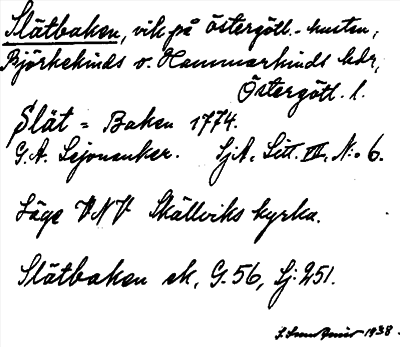 Slätbaken, vik på Östergötl.-kusten,
Björkekinds o. Hammarkinds hdr,
Östergötl. l.
Slät = Baken 1774.
G. A. Lejonanker. SjA, Litt. VII, N:o 6.
Läge VNV Skällviks kyrka.
Slätbaken ek, G. 56, Sj: 251.
1938.